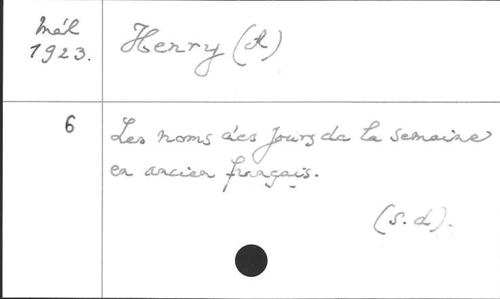 Mél
1923.
Henry (A)
6
Les noms des jours de la semaine
en ancien français.
(s. d).